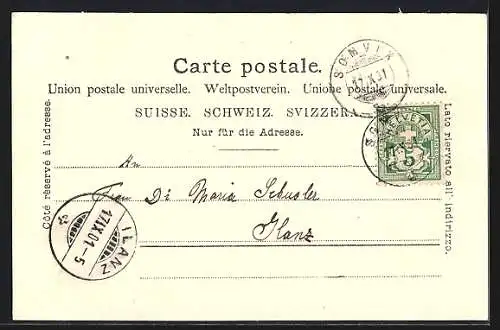 Carte postale.
Union postale universelle. Weltpostverein. Unione postale universale.
SUISSE. SCHWEIZ. SVIZZERA.
Nur für die Adresse.
Côté réservé à l'adresse.
Lato riservato all' indirizzo.
SOMVIX
17.X.01
HELVETIA
5
An
Frau Dr Maria Schusler
Ilanz
ILANZ
17.IX.01.-5